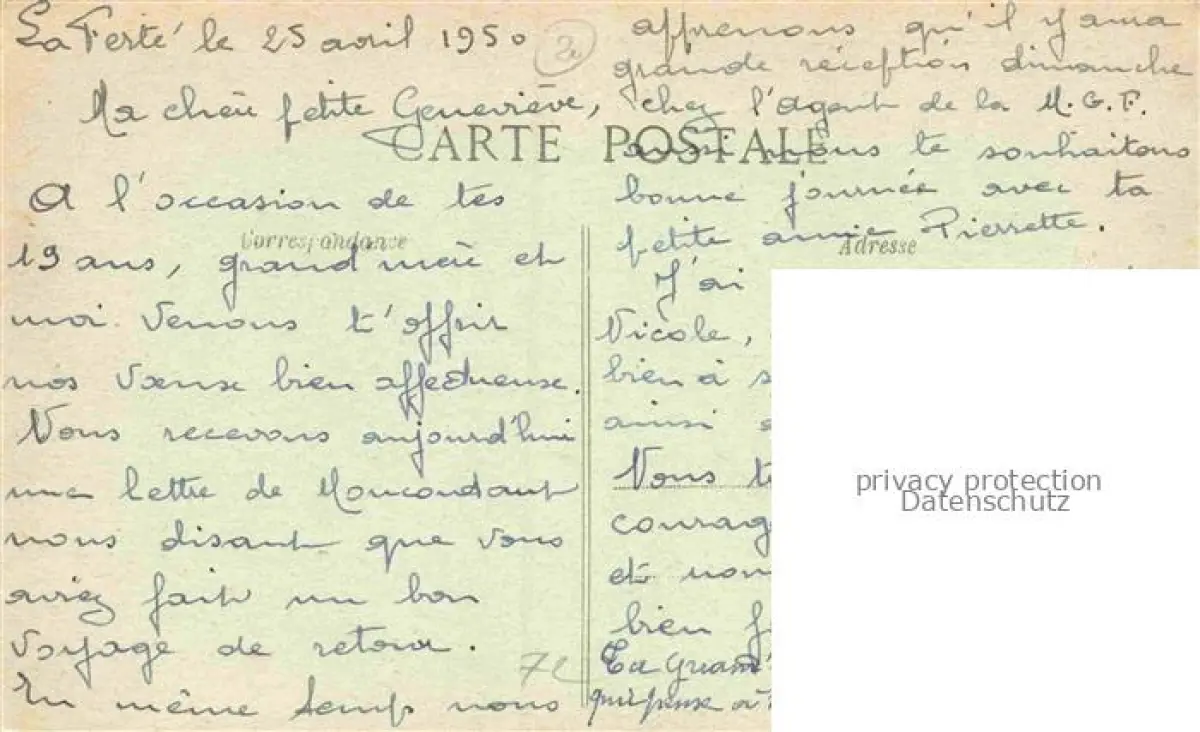 La Ferté le 25 avril 1950
Ma chère petite Geneviève,
CARTE POSTALE
Correspondance
A l'occasion de tes
19 ans, grand'mère et
moi venons t'offrir
nos vœux bien affectueux.
Nous recevons aujourd'hui
une lettre de Moncoutant
nous disant que vous
aviez fait un bon
voyage de retour.
En même temps nous
72
apprenons qu'il y aura
grande réception dimanche
chez l'agent de la M.G.F.
aussi nous te souhaitons
bonne journée avec ta
petite amie Pierrette.
Adresse
J'ai
Nicole,
bien à s
ainsi
Nous t
courag
et nou
bien f
Ta Grand'
qui pense à
privacy protection
Datenschutz